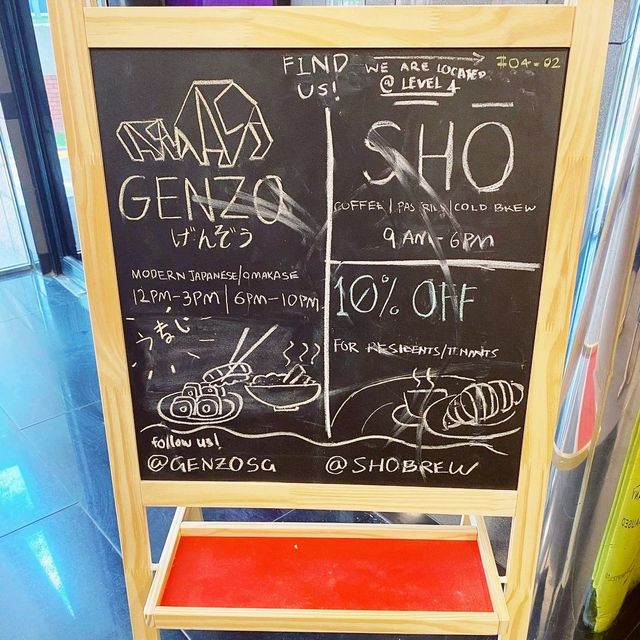 FIND US!
WE ARE LOCATED @ LEVEL 4
#04-02
GENZO
げんぞう
MODERN JAPANESE/OMAKASE
12PM-3PM | 6PM-10PM
うまい
SHŌ
COFFEE | PASTRIES | COLD BREW
9 AM-6PM
10% OFF
FOR RESIDENTS/TENANTS
follow us!
@GENZOSG
@SHOBREW